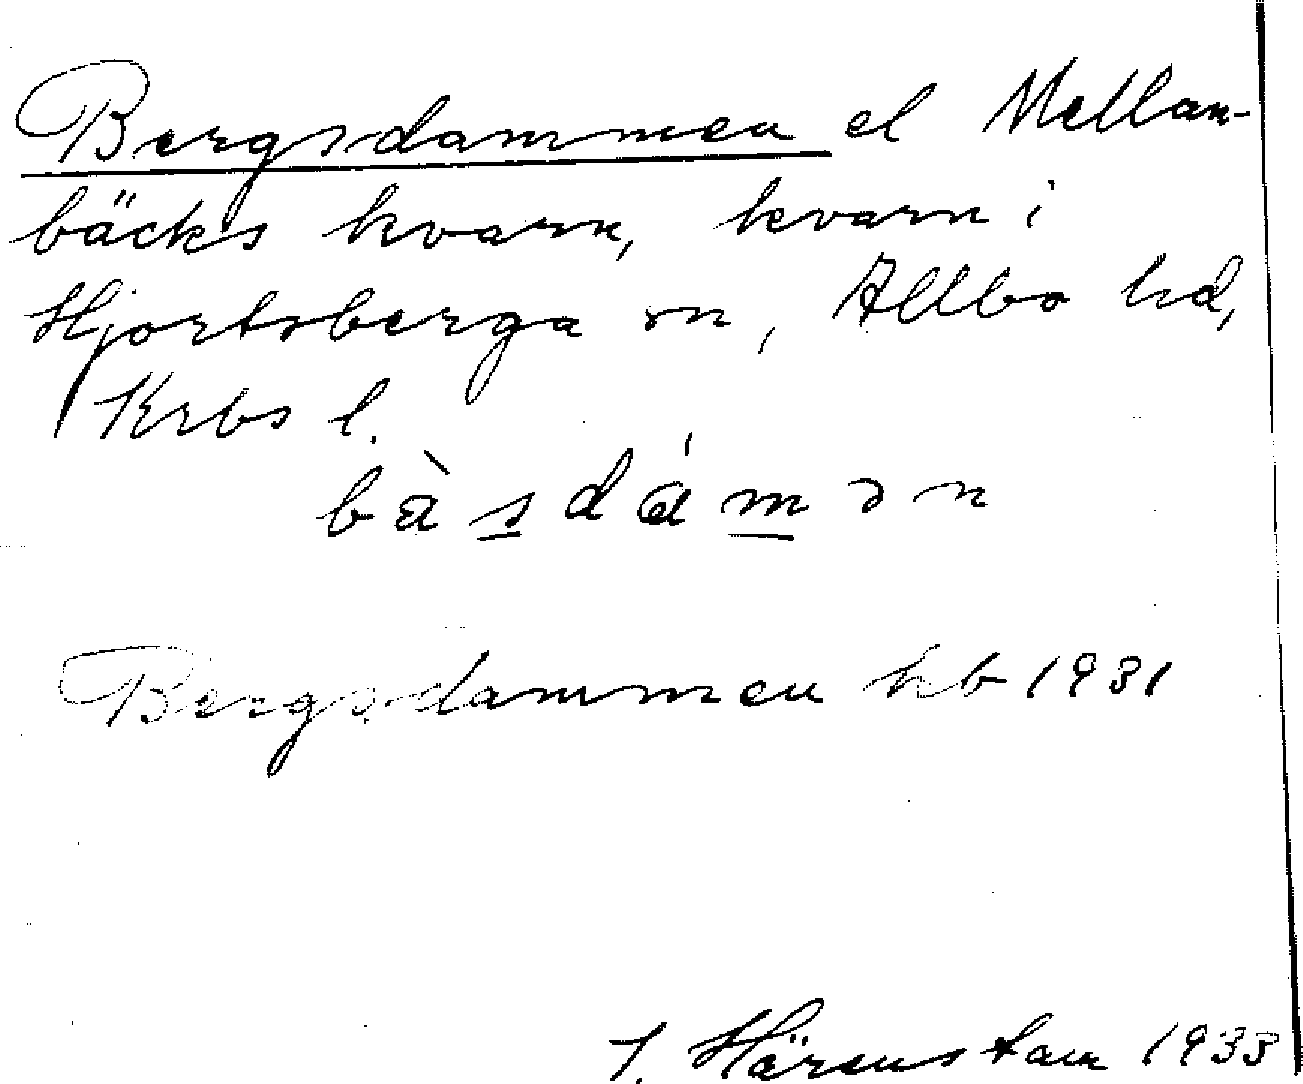 Bergsdammen el Mellan-
bäcks kvarn, kvarn i
Hjortsberga sn, Allbo hd,
Krbs l.
bàsdámən
Bergsdammen hb 1931
J. Härenstam 1933